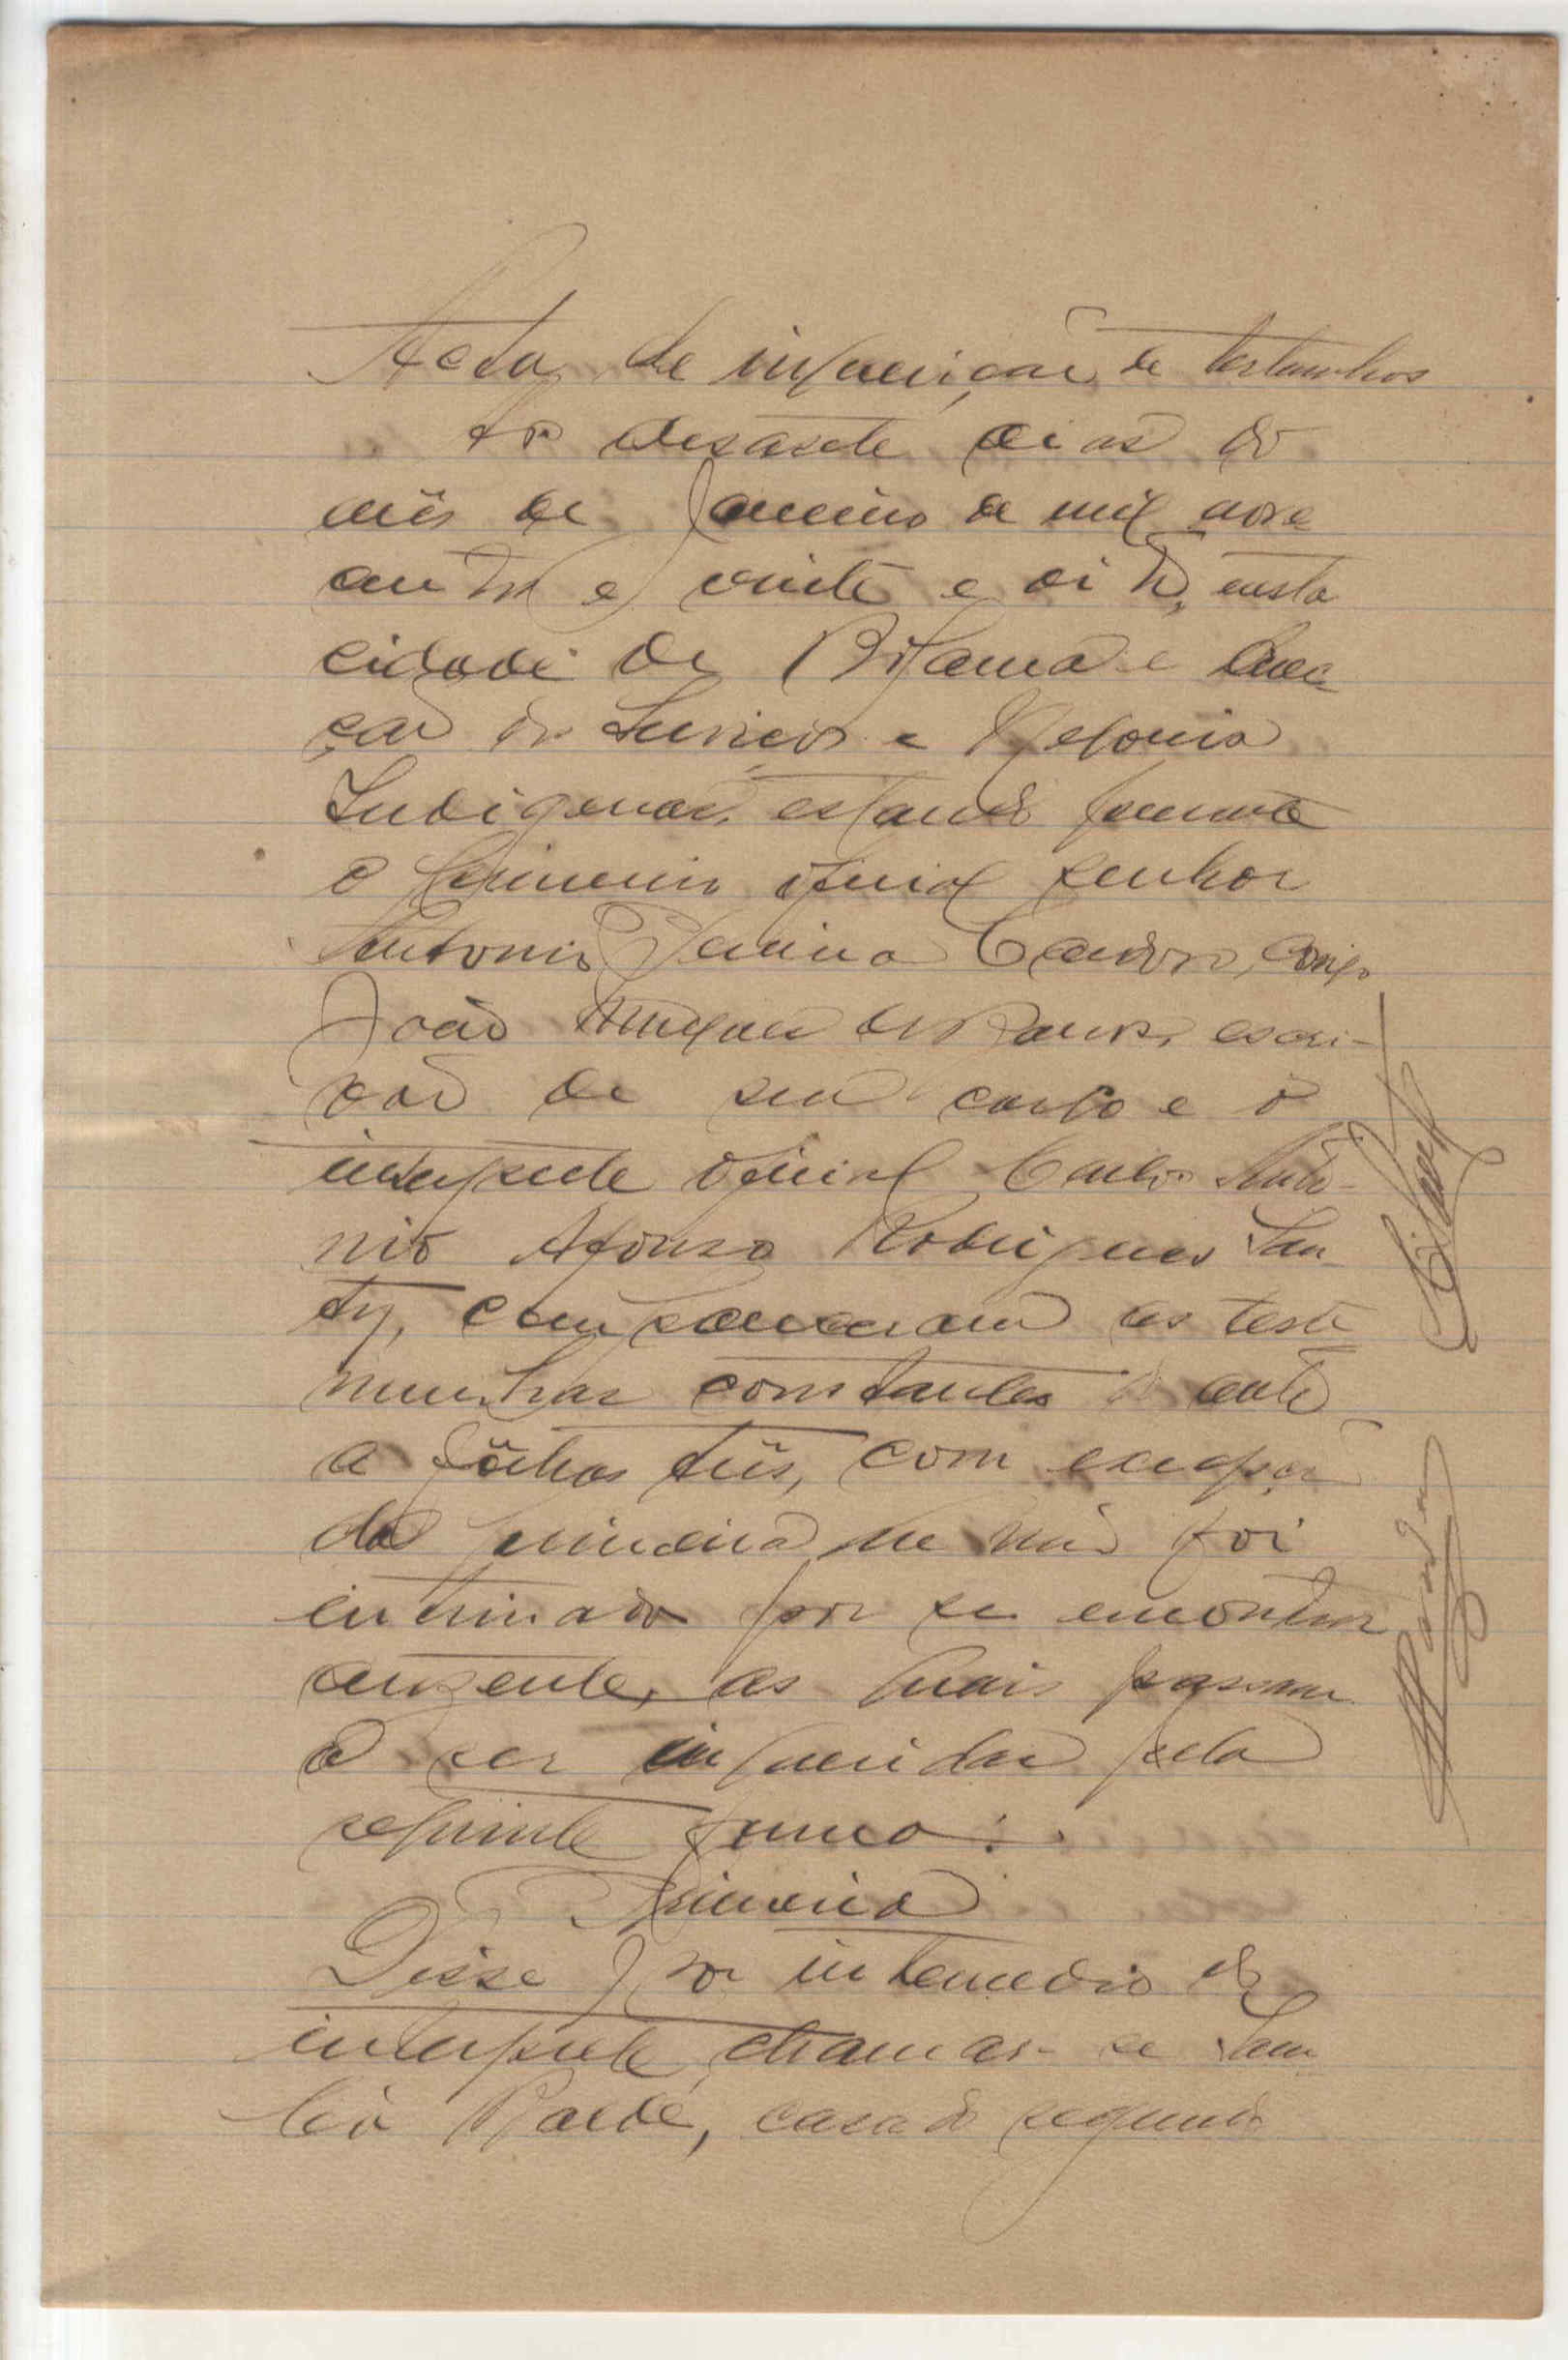 Acta de inquirição de testemunhas
Ao desasete dias do
mês de Janeiro de mil nove
centos e vinte e oito, nesta
cidade de Bolama e Direc
ção dos Serviços e Negocios
Indigenas, estando presente
o primeiro oficial senhor
Antonio Pereira Cardoso, comigo
João de Barros, escri-
vão de seu cargo e o
interprete oficial Carlos Antó-
nio Afonso Rodrigues San
ty, compareceram as teste
munhas constantes do auto
a folhas três, com excepção
da primeira que não foi
intimada por se encontrar
ausente, as quais passam
a ser inqueridas pela
seguinte forma:
Primeira
Disse por intermedio do
interprete chamar-se Sam
Baldé, casado segundo